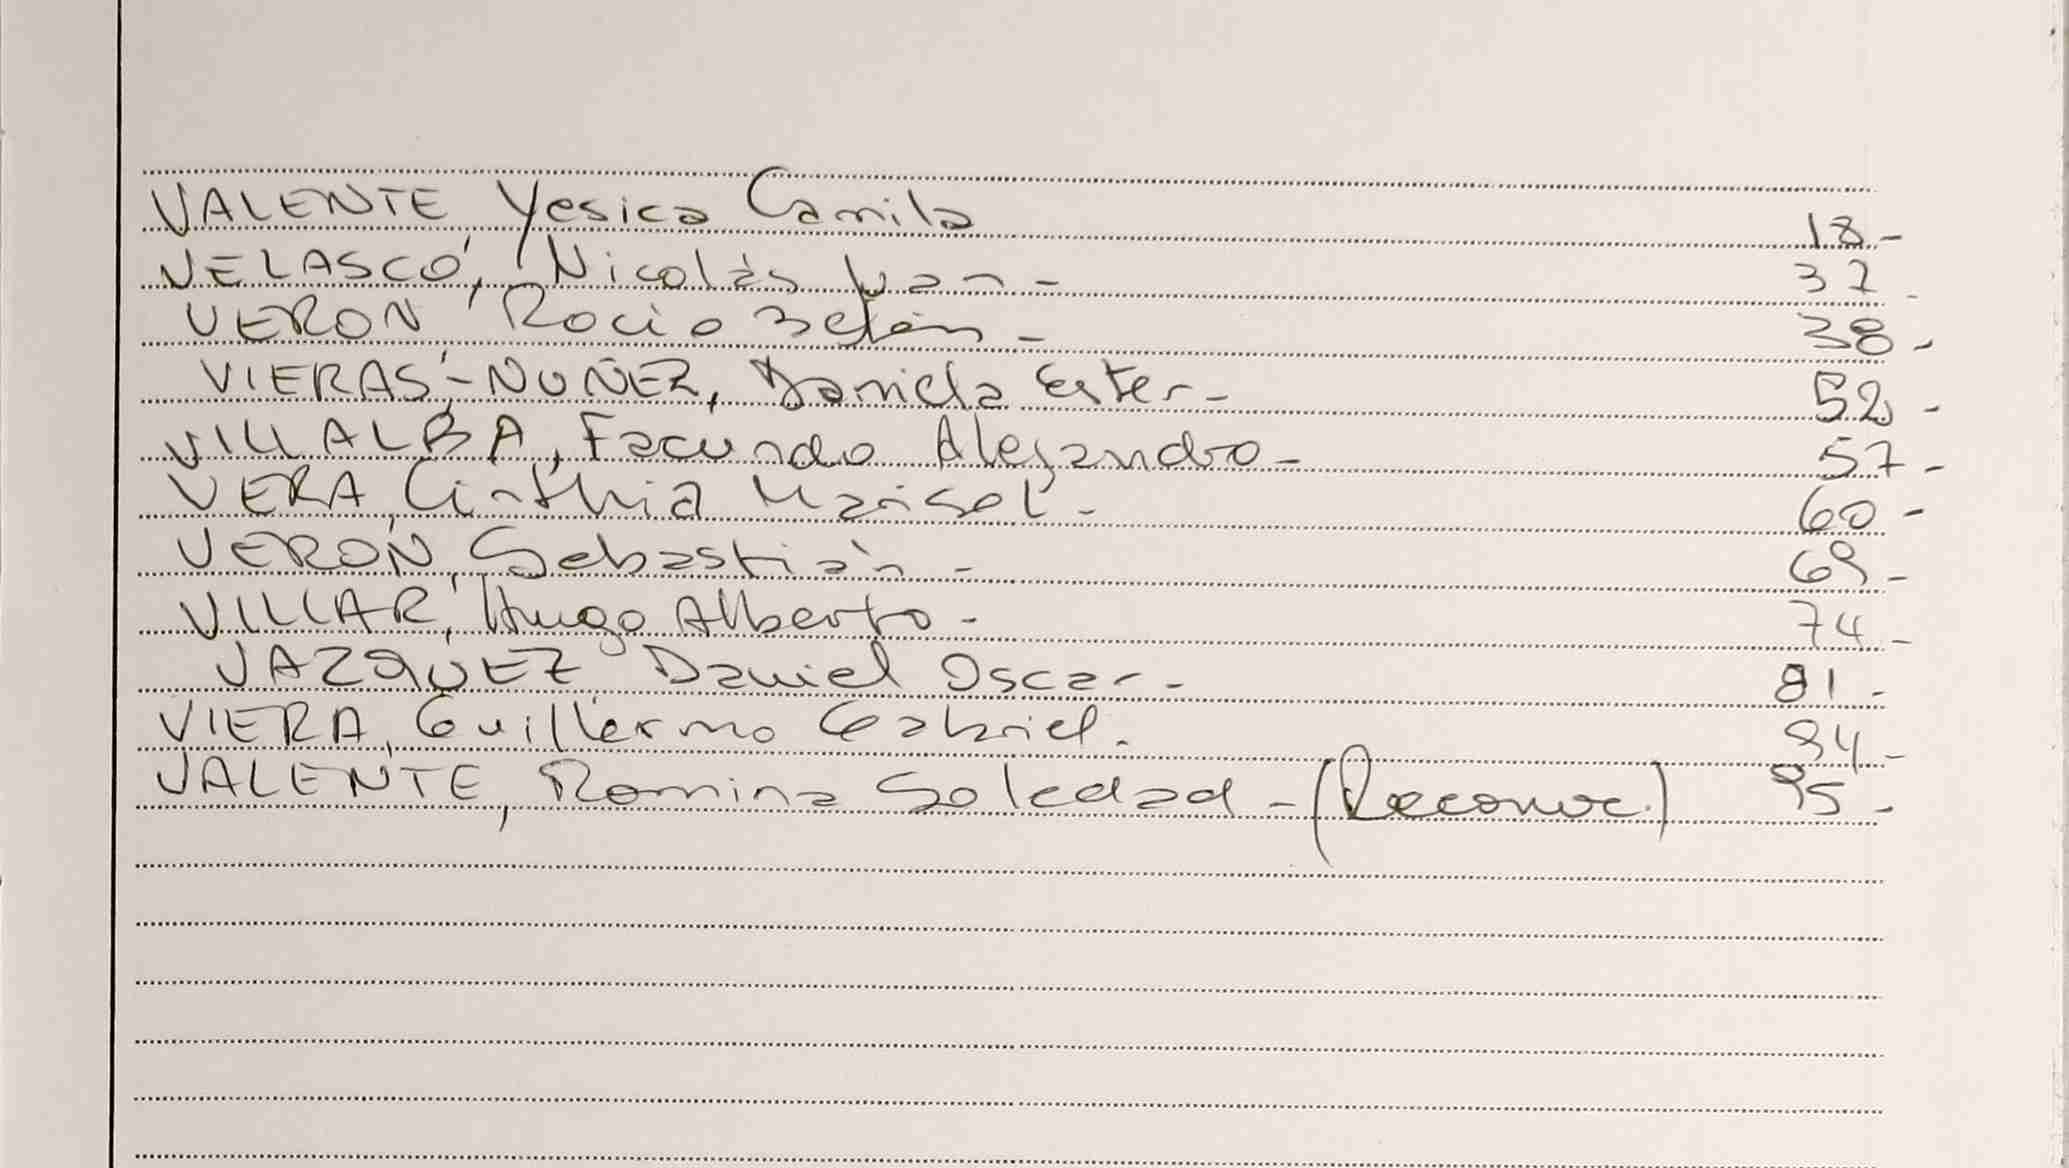 VALENTE, Yesica Camila 18.-
VELASCO, Nicolás Ivan - 37.
VERON, Rocio Belén - 38 -
VIERAS - NUÑEZ, Daniela Ester - 52 -
VILLALBA, Facundo Alejandro - 57 -
VERA, Cinthia Marisol - 60 -
VERON, Sebastián - 69 -
VILLAR, Hugo Alberto - 74 -
VAZQUEZ, Daniel Oscar - 81 -
VIERA, Guillermo Gabriel. 94 -
VALENTE, Romina Soledad - (Reconoc.) 95 -